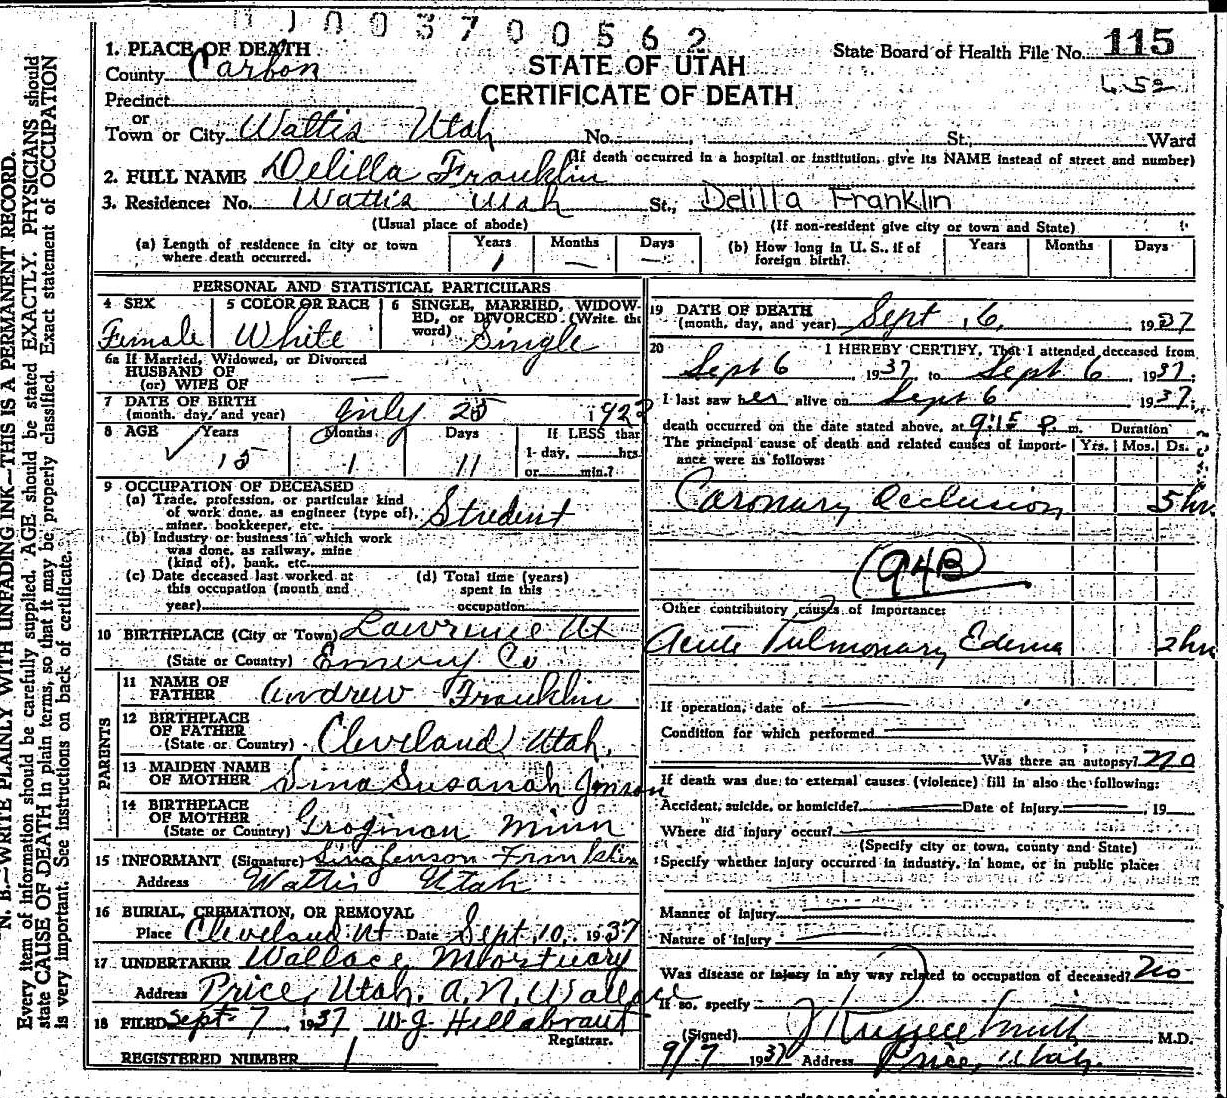 0037 00562
1. PLACE OF DEATH
County Carbon
STATE OF UTAH
CERTIFICATE OF DEATH
State Board of Health File No. 115
Precinct
or
Town or City Wattis Utah No. St., Ward
(If death occurred in a hospital or institution, give its NAME instead of street and number)
2. FULL NAME Delilla Franklin
3. Residence: No. Wattis Utah St., Delilla Franklin
(Usual place of abode) (If non-resident give city or town and State)
(a) Length of residence in city or town where death occurred. Years 1 Months — Days —
(b) How long in U. S., if of foreign birth? Years Months Days
PERSONAL AND STATISTICAL PARTICULARS
4 SEX Female
5 COLOR OR RACE White
6 SINGLE, MARRIED, WIDOWED, or DIVORCED (Write the word) Single
6a If Married, Widowed, or Divorced
HUSBAND OF
(or) WIFE OF —
7 DATE OF BIRTH
(month, day, and year) July 25 192
8 AGE Years 15 Months 1 Days 11 If LESS than
1-day, hrs
or min.?
9 OCCUPATION OF DECEASED
(a) Trade, profession, or particular kind
of work done, as engineer (type of),
miner, bookkeeper, etc. Student
(b) Industry or business in which work
was done, as railway, mine
(kind of), bank, etc.
(c) Date deceased last worked at
this occupation (month and
year)
(d) Total time (years)
spent in this
occupation
10 BIRTHPLACE (City or Town) Lawrence Ut
(State or Country) Emery Co
PARENTS
11 NAME OF
FATHER Andrew Franklin
12 BIRTHPLACE
OF FATHER
(State or Country) Cleveland Utah.
13 MAIDEN NAME
OF MOTHER Sina Susanah Jenson
14 BIRTHPLACE
OF MOTHER
(State or Country) Minn
15 INFORMANT (Signature) Sina Jenson Franklin
Address Wattis Utah
16 BURIAL, CREMATION, OR REMOVAL
Place Cleveland Ut Date Sept 10, 1937
17 UNDERTAKER Wallace Mortuary
Address Price, Utah. A.N. Wallace
18 FILED Sept 7, 1937 W.J. Hillabrant
Registrar.
REGISTERED NUMBER 1
19 DATE OF DEATH
(month, day, and year) Sept 6, 1937
20 I HEREBY CERTIFY, That I attended deceased from
Sept 6, 1937, to Sept 6, 1937.
I last saw her alive on Sept 6 1937.
death occurred on the date stated above, at 9:15 P. m. Duration
The principal cause of death and related causes of importance were as follows: Yrs. Mos. Ds.
Coronary Occlusion 5 hr
94B
Other contributory causes of importance:
Acute Pulmonary Edema 2 hr
If operation, date of
Condition for which performed
Was there an autopsy? No
If death was due to external causes (violence) fill in also the following:
Accident, suicide, or homicide? Date of injury , 19
Where did injury occur?
(Specify city or town, county and State)
Specify whether injury occurred in industry, in home, or in public place:
Manner of injury
Nature of injury
Was disease or injury in any way related to occupation of deceased? No
If so, specify
(Signed) J Russell Smith M.D.
9/7 1937 Address Price, Utah.
N. B.—WRITE PLAINLY WITH UNFADING INK—THIS IS A PERMANENT RECORD.
Every item of information should be carefully supplied. AGE should be stated EXACTLY. PHYSICIANS should
state CAUSE OF DEATH in plain terms, so that it may be properly classified. Exact statement of OCCUPATION
is very important. See instructions on back of certificate.